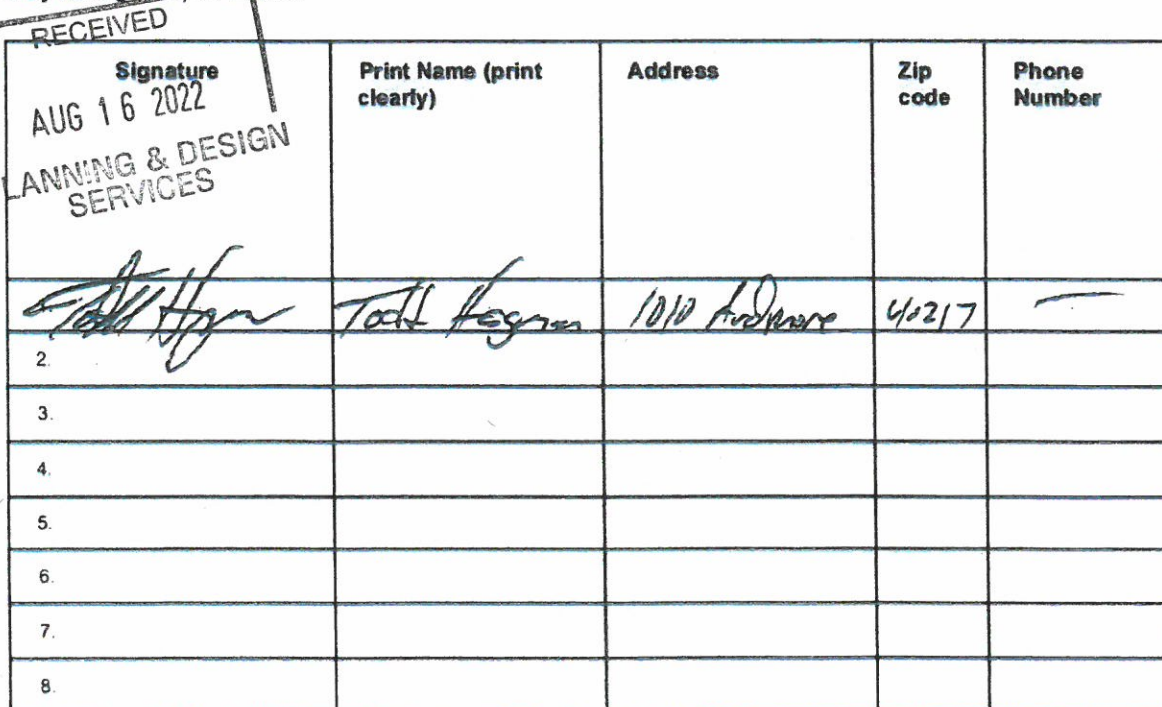 RECEIVED
AUG 16 2022
LANNING & DESIGN
SERVICES
Signature Print Name (print clearly) Address Zip code Phone Number
Todd Todd 1010 Ardmore 40217 —
2.
3.
4.
5.
6.
7.
8.